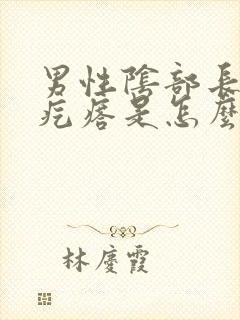 男性陰部長
疙瘩是怎麼
林慶霞